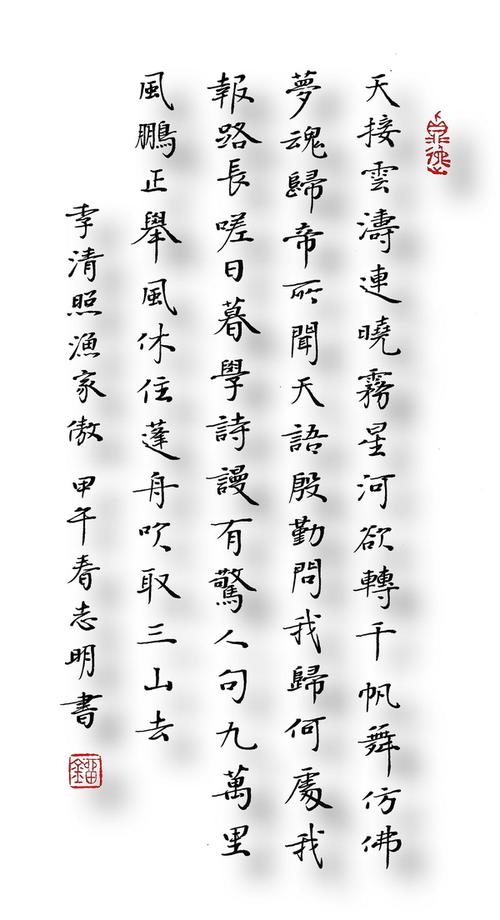 天接雲濤連曉霧星河欲轉千帆舞仿佛
夢魂歸帝所聞天語殷勤問我歸何處我
報路長嗟日暮學詩謾有驚人句九萬里
風鵬正舉風休住蓬舟吹取三山去
李清照漁家傲 甲午春志明書